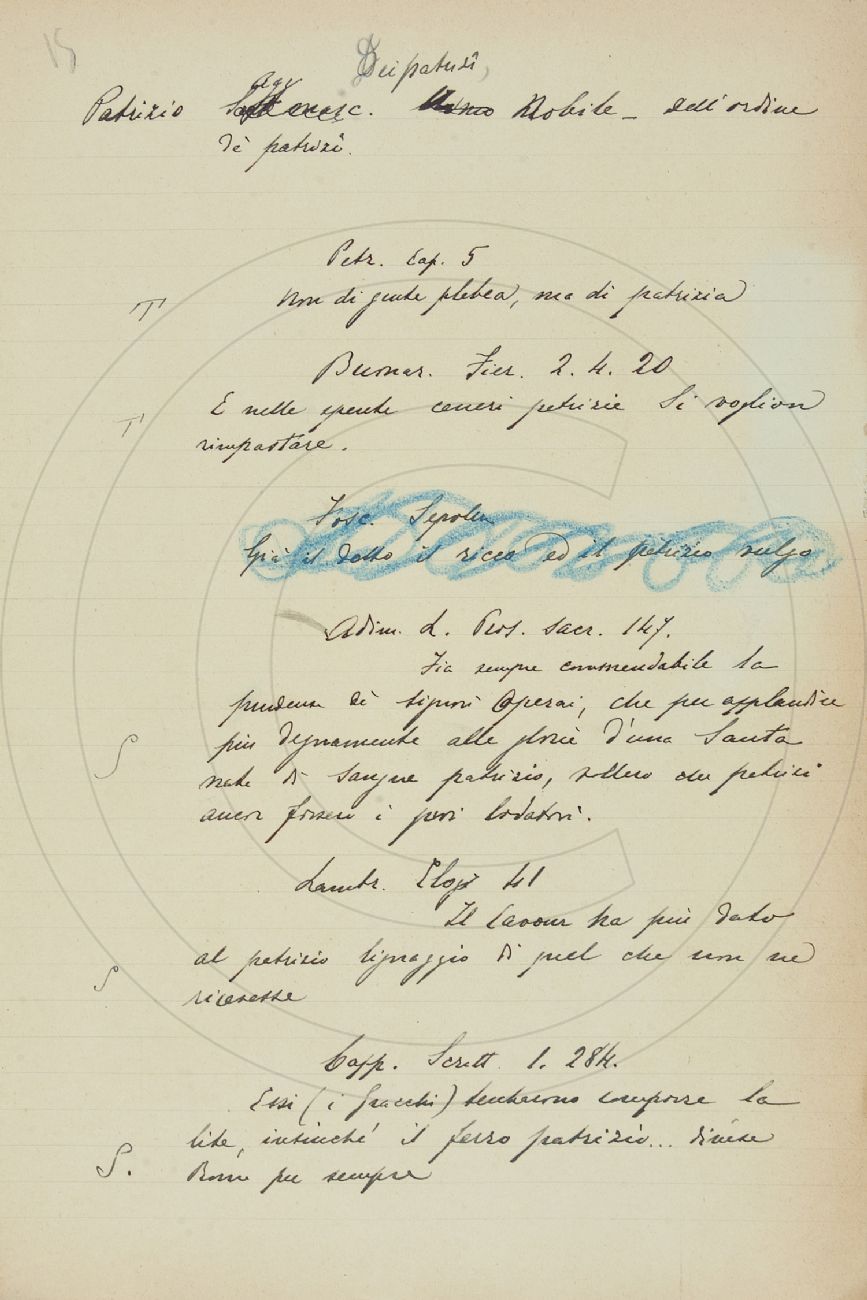 15
Dei patrizî
Agg.
Patrizio Sost. masc. Uomo Nobile – dell'ordine
de' patrizî.
Petr. Cap. 5
Non di gente plebea, ma di patrizia
T
Buonar. Fier. 2. 4. 20
E nelle spente ceneri patrizie Si voglion
T
rimpastare.
Fosc. Sepolcr.
Già il dotto il ricco ed il patrizio vulgo
Adim. L. Pros. sacr. 147.
Fia sempre commendabile la
prudenza de' signori Operai, che per applaudire
più degnamente alle glorie d'una Santa
S
nata di sangue patrizio, vollero che patrizi
ancor fossero i suoi lodatori.
Lambr. Elogi 41
Il Cavour ha più dato
al patrizio lignaggio di quel che non ne
S
ricevesse
Capp. Scritt. 1. 284.
Essi (i Gracchi) tentarono comporre la
lite, insinché il ferro patrizio... divise
S.
Roma per sempre